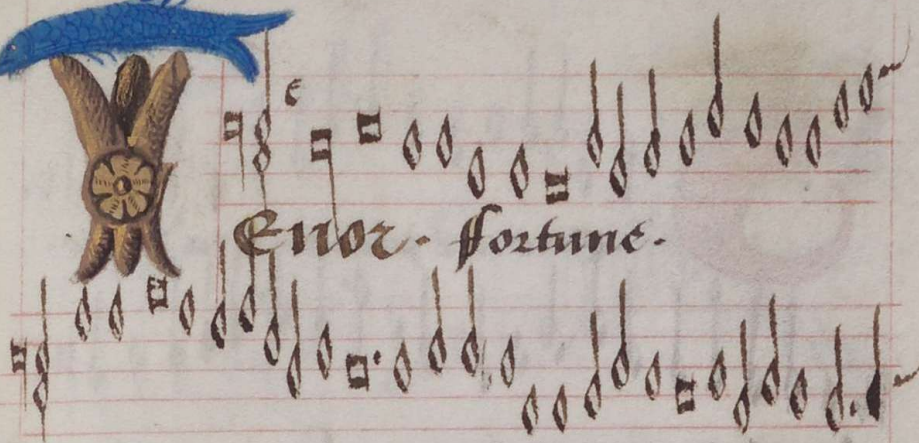 Tenor. Fortune.